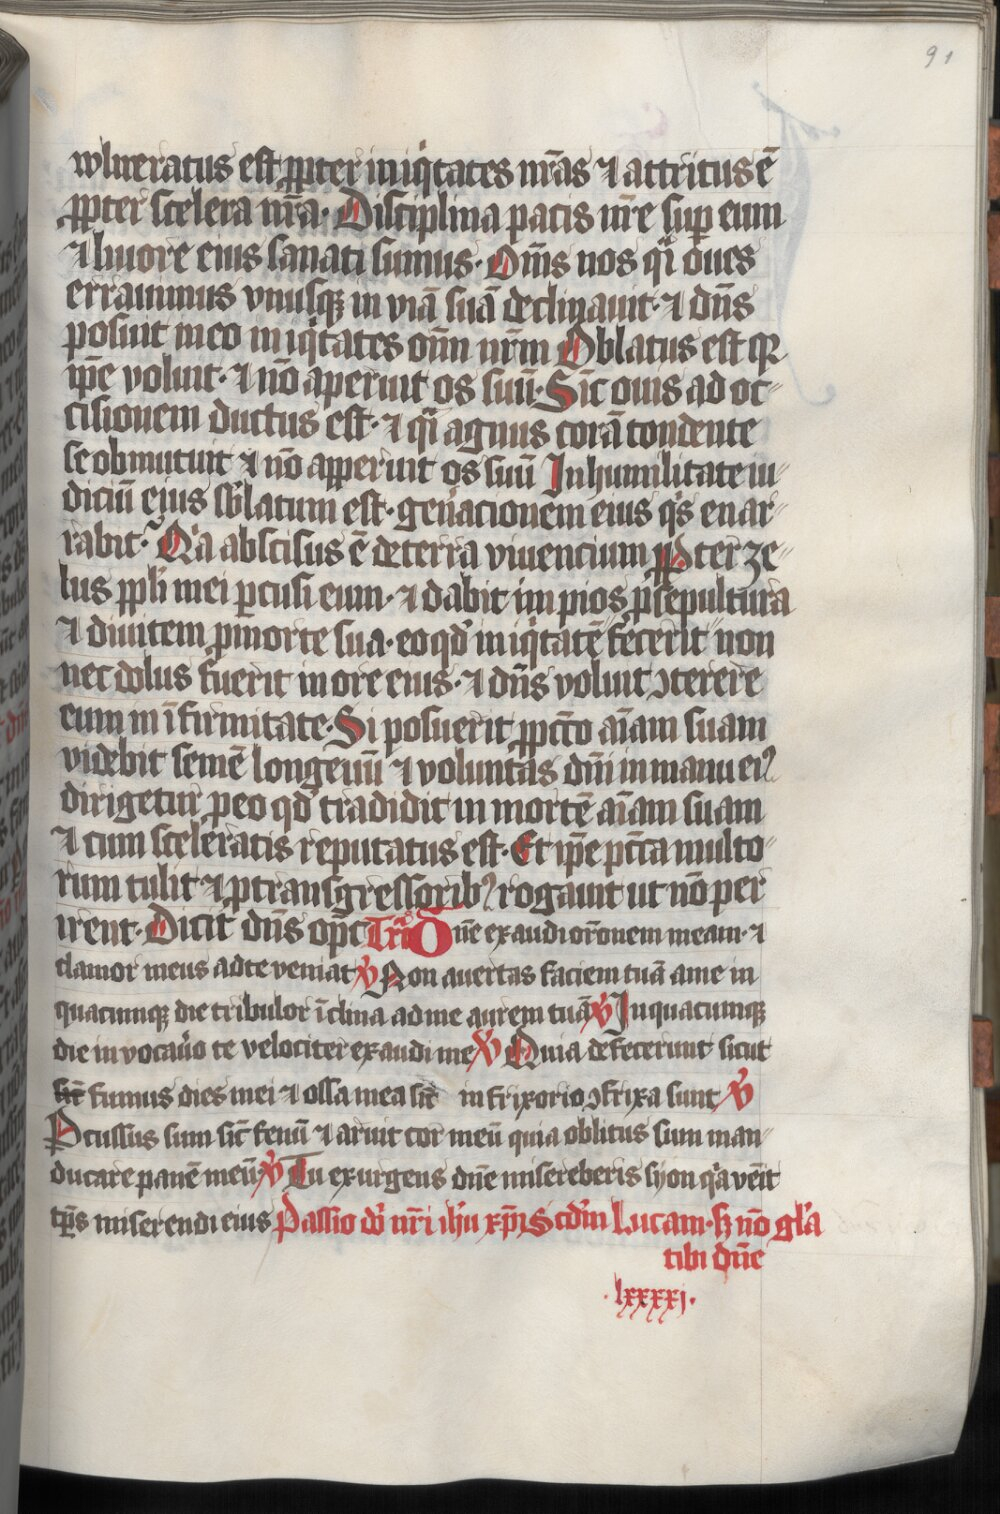 91
wlneratus est ꝓpter iniq̇tates nr̄as ⁊ attritus ē
ꝓpter scelera nr̄a · Disciplina pacis nr̄e suꝑ eum
⁊ liuore eius sanati sumus · Om̄s nos qͣi oues
errauimus vnusqꝫ in viā suā declinauit · ⁊ dn̄s
posuit in eo iniq̇tates om̄ nr̄m Oblatus est qꝛ
ip̄e voluit · ⁊ nō aperuit os suū · Sic̄ ouis ad oc-
cisionem ductus est · ⁊ qͣi agnus corā tondente
se obmutuit ⁊ nō apperuit os suū In humilitate iu-
diciū eius sb̾latum est · gen̾acionem eius q̇s enar-
rabit · Qͥa abscisus ē de terra viuencium ꝓpter ze-
lus ppl̾i mei ꝑcussi eum · ⁊ dabit impios ꝓ sepultura
⁊ diuitem ꝓ morte sua · eo qd̾ iniq̇tatē fecerit non
nec dolus fuerit in ore eius · ⁊ dn̄s voluit ꝯterere
eum in īfirmitate · Si posuerit ꝓ pcc̄to aīam suam
videbit semē longeuū ⁊ voluntas dn̄i in manu eiꝰ
dirigetur ꝓ eo qd̾ tradidit in mortē aīam suam
⁊ cum sceleratis reputatus est · Et ip̄e pc̄ca multo-
rum tulit ⁊ ꝓ transgressoribꝰ rogauit ut nō per
irent · Dicit dn̄s op̄c Trͣ Dn̄e exaudi or̄onem meam · ⁊
clamor meus ad te veniat ℣ Non auertas faciem tuā a me in
quacumqꝫ die tribulor īclina ad me aurem tuā ℣ In quacumqꝫ
die in vocau̾o te velociter exaudi me ℣ Quia defecerunt sicut
sic̄ fumus dies mei ⁊ ossa mea sic̄ in frixorio ꝯfrixa sunt ℣
Ꝑcussus sum sic̄ fenū ⁊ aruit cor meū quia oblitus sum man-
ducare panē meū ℣ Tu exurgens dn̄e misereberis syon qͥa vēit
tp̄s miserendi eius Passio dn̄i nr̄i ih̄u xp̄i Scd̄m Lucam · s̄ nō gl̾a
tibi dn̄e
· lxxxxj ·